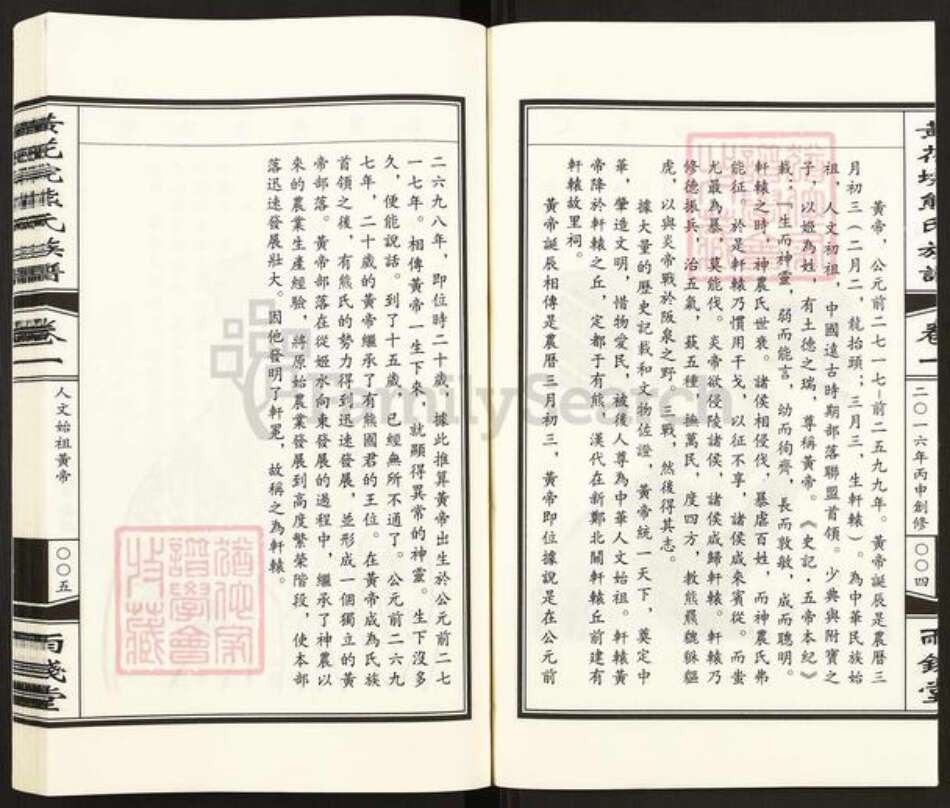 黃帝，公元前二七一七–前二五九九年。黃帝誕辰是農曆三
月初三（二月二，龍抬頭；三月三，生軒轅）。為中華民族始
祖，人文初祖，中國遠古時期部落聯盟首領。少典與附寶之
子，以姬為姓，有土德之瑞，尊稱黃帝。《史記·五帝本紀》
載：『生而神靈，弱而能言，幼而徇齊，長而敦敏，成而聰明。
軒轅之時，神農氏世衰。諸侯相侵伐，暴虐百姓，而神農氏弗
能征。於是軒轅乃慣用干戈，以征不享，諸侯咸來賓從。而蚩
尤最為暴，莫能伐。炎帝欲侵陵諸侯，諸侯咸歸軒轅。軒轅乃
修德振兵，治五氣，蓺五種，撫萬民，度四方，教熊羆貔貅貙
虎，以與炎帝戰於阪泉之野。三戰，然後得其志。
據大量的歷史記載和文物佐證，黃帝統一天下，奠定中
華，肇造文明，惜物愛民，被後人尊為中華人文始祖。軒轅黃
帝降於軒轅之丘，定都于有熊，漢代在新鄭北關軒轅丘前建有
軒轅故里祠。
黃帝誕辰相傳是農曆三月初三，黃帝即位據說是在公元前
二〇一六年丙申創修
〇〇四
二六九八年，即位時二十歲，據此推算黃帝出生於公元前二七
一七年。相傳黃帝一生下來，就顯得異常的神靈。生下沒多
久，便能說話。到了十五歲，已經無所不通了。公元前二六九
七年，二十歲的黃帝繼承了有熊國君的王位。在黃帝成為氏族
首領之後，有熊氏的勢力得到迅速發展，並形成一個獨立的黃
帝部落。黃帝部落在從姬水向東發展的過程中，繼承了神農以
來的農業生產經驗，將原始農業發展到高度繁榮階段，使本部
落迅速發展壯大。因他發明了軒冕，故稱之為軒轅。
卷一
人文始祖黃帝
〇〇五
FamilySearch